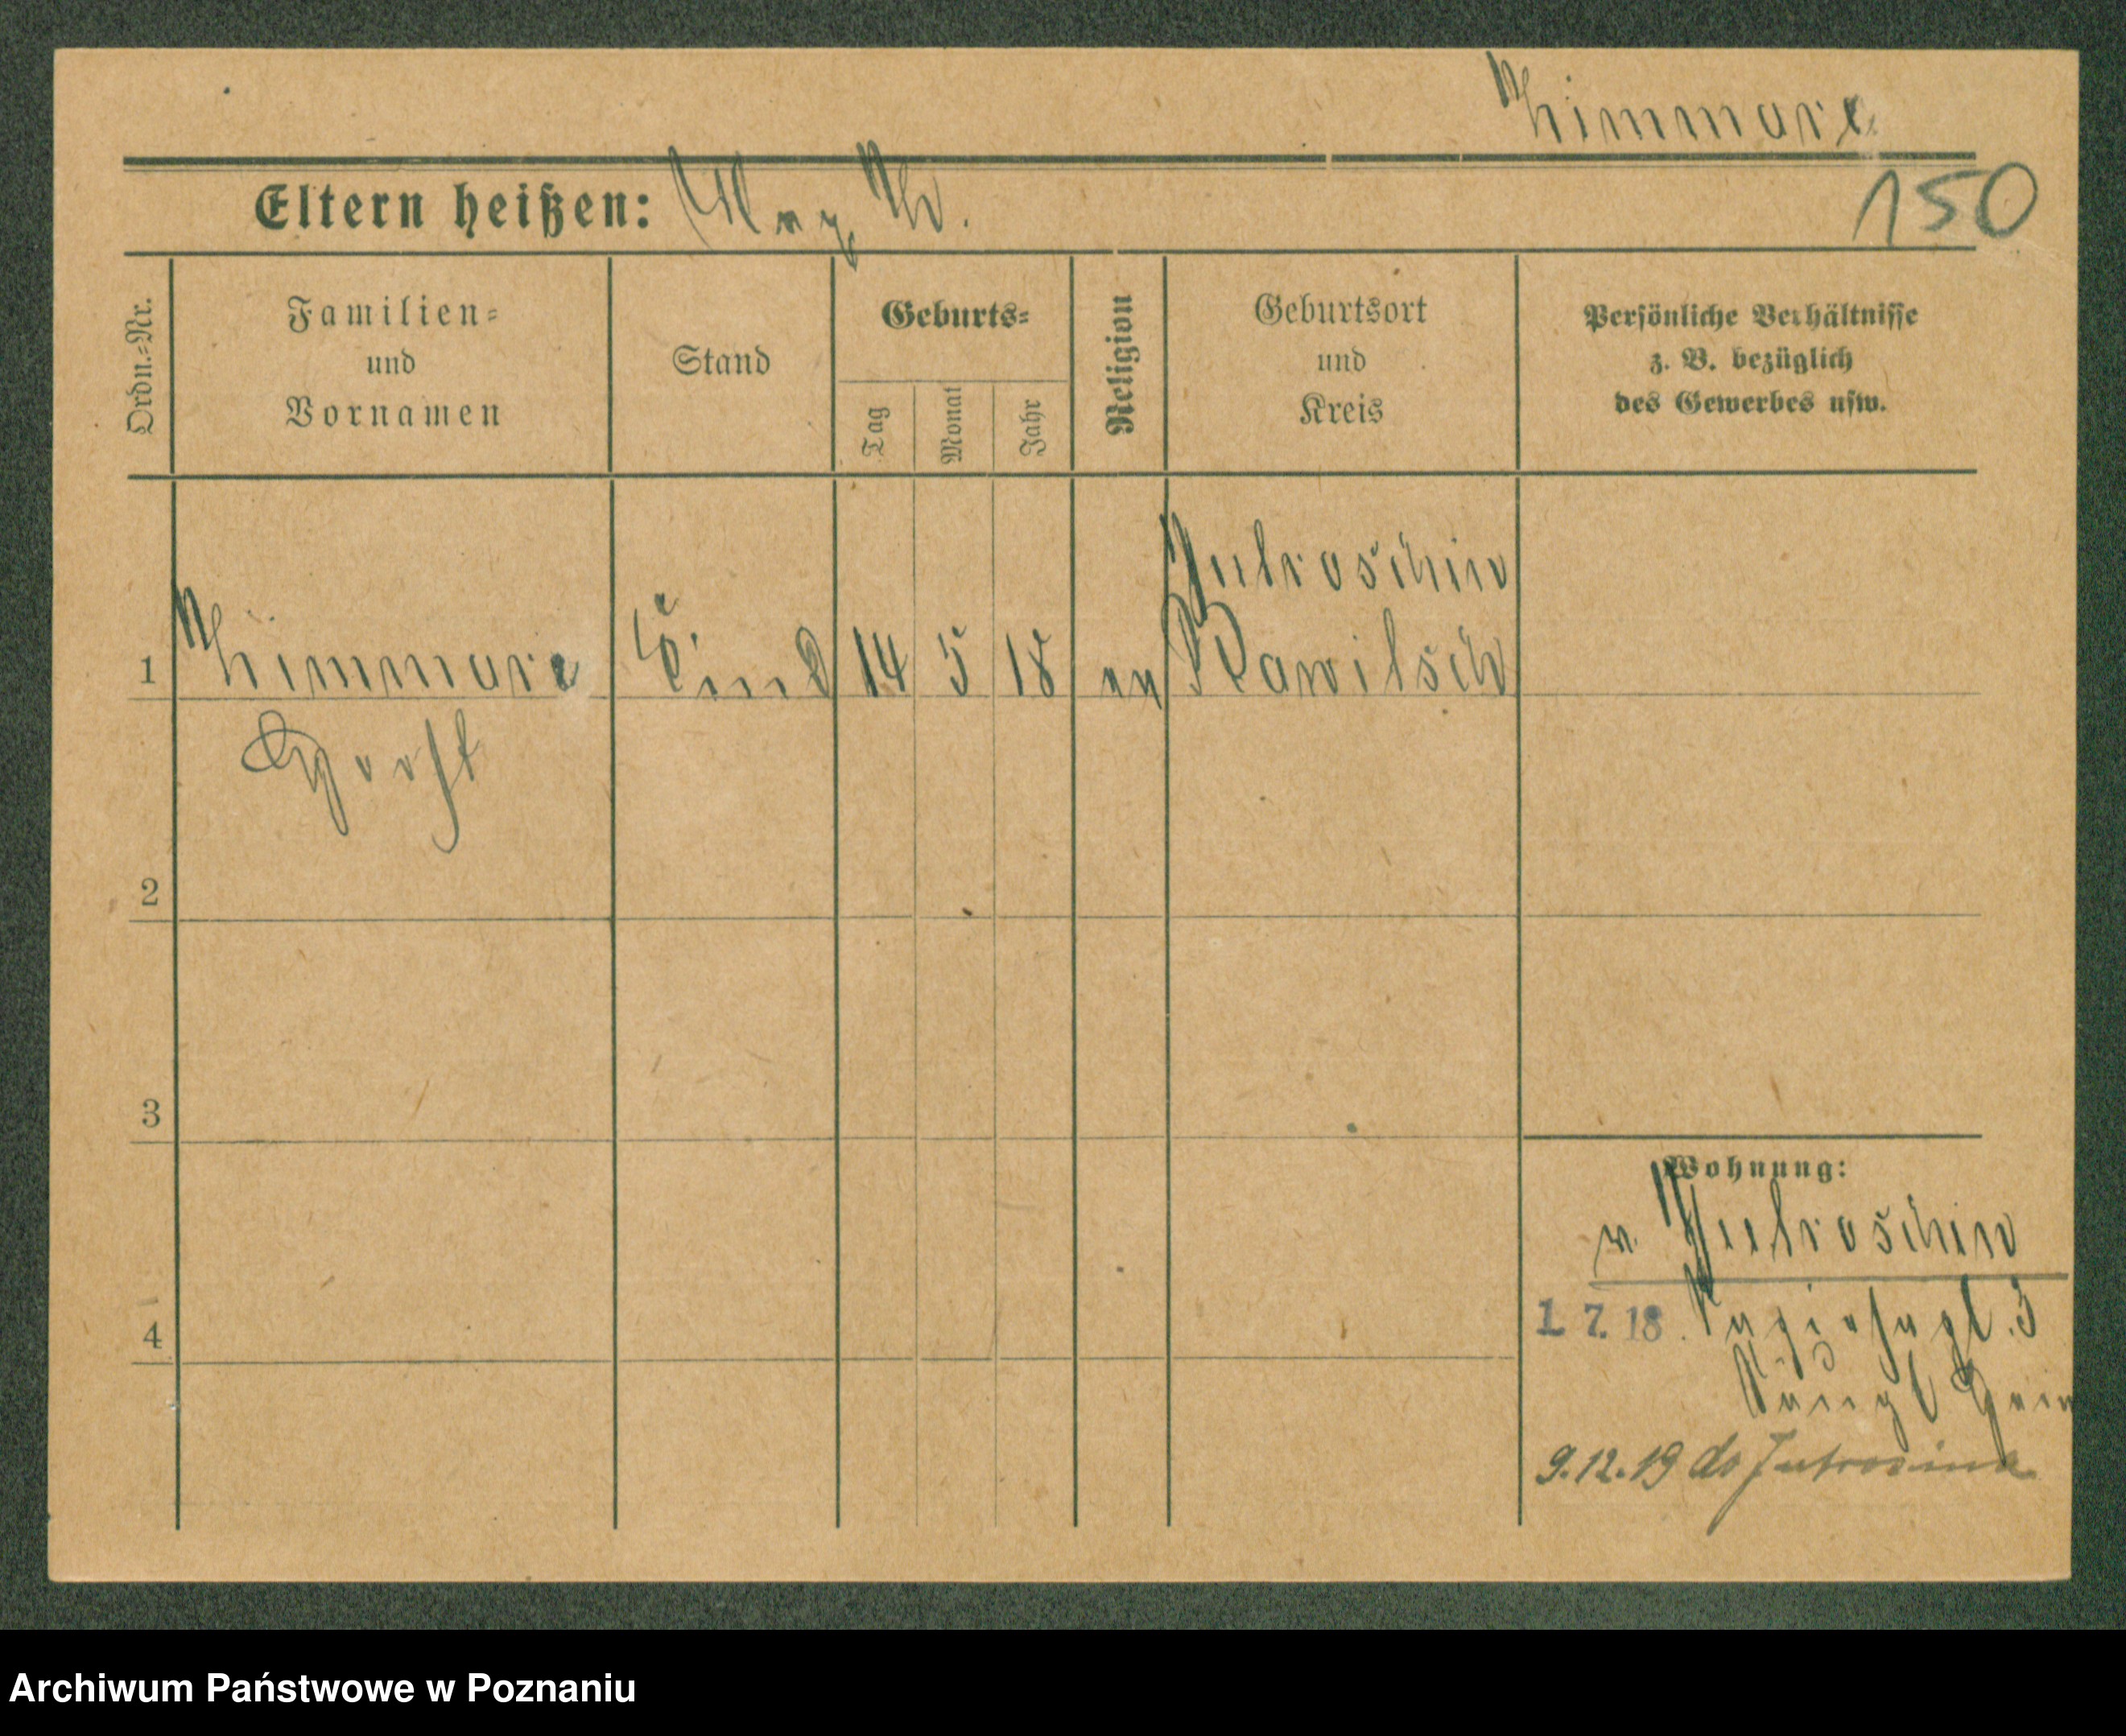 150
Eltern heißen:
Ordn.=Nr.
Familien=
und
Vornamen
Stand
Geburts=
Tag
Monat
Jahr
Religion
Geburtsort
und
Kreis
Persönliche Verhältnisse
z. B. bezüglich
des Gewerbes usw.
Jutroschin
1
Kind 14 5 18 Rawitsch
Horst
2
3
4
Wohnung:
v. Jutroschin
1. 7. 18.
9.12.19 do Jutrosina
Archiwum Państwowe w Poznaniu